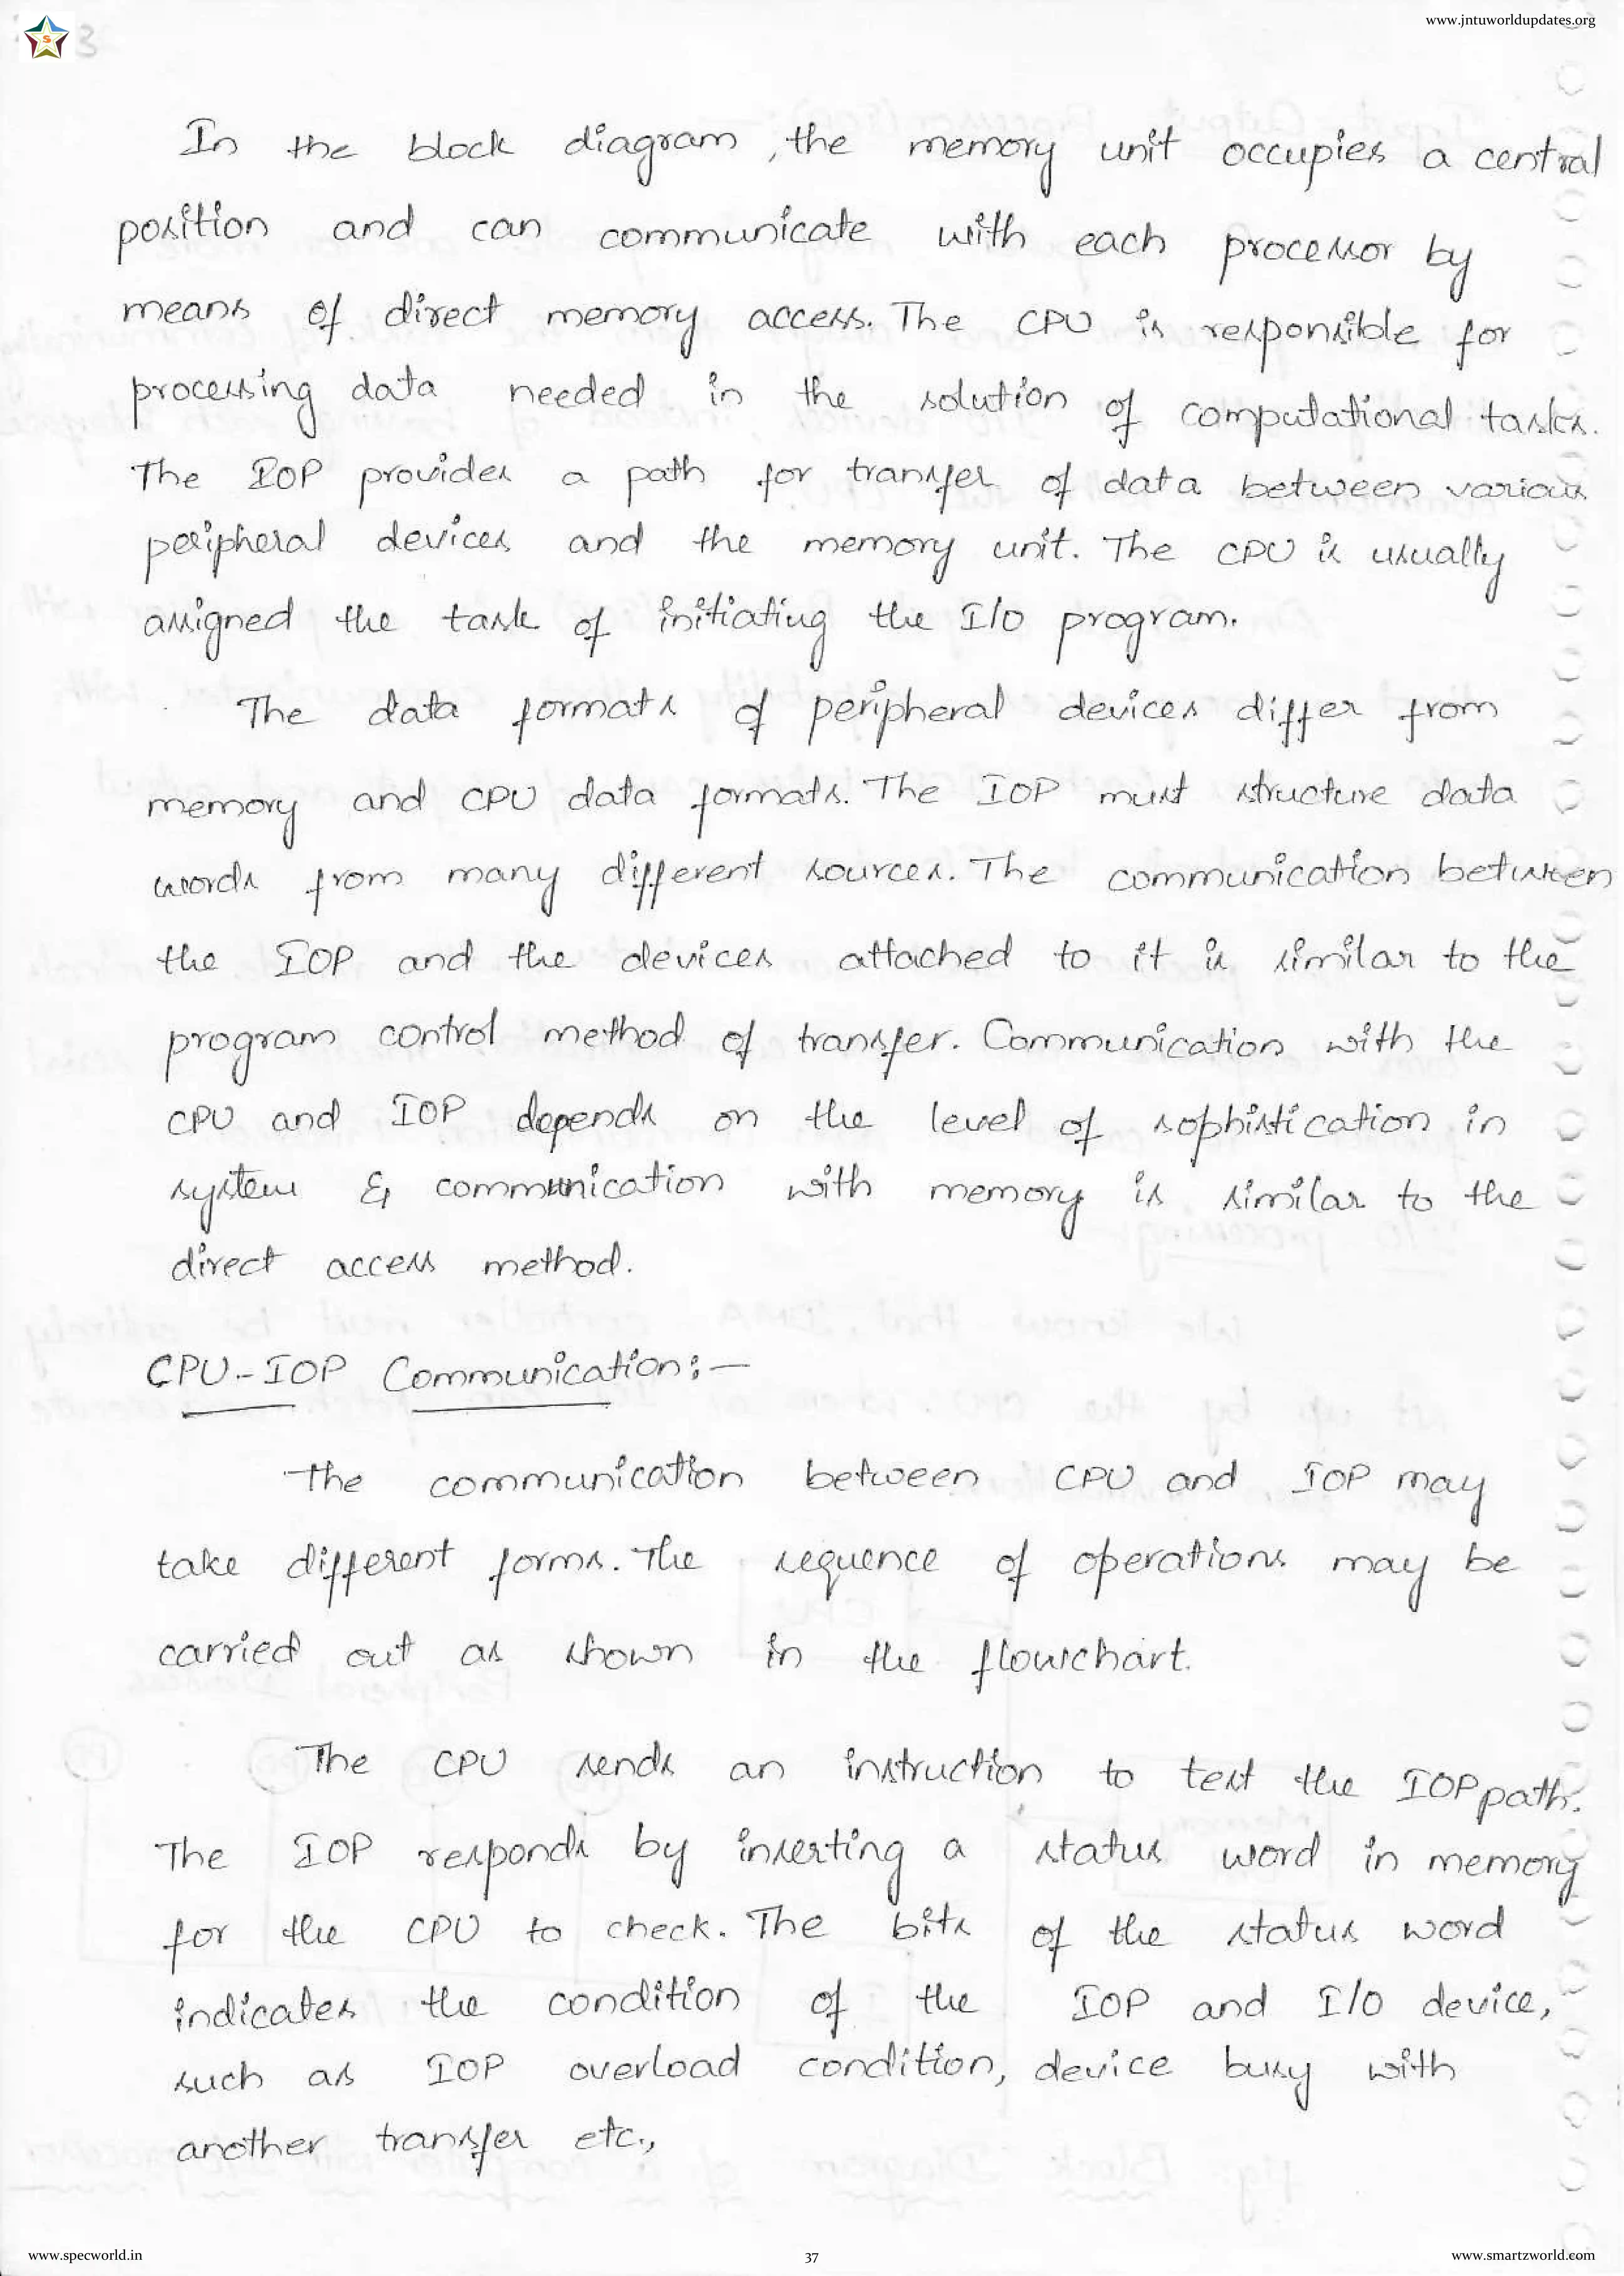 www.jntuworldupdates.org
S 3
In the block diagram, the memory unit occupies a central
position and can communicate with each processor by
means of direct memory access. The CPU is responsible for
processing data needed in the solution of computational tasks.
The IOP provides a path for transfer of data between various
peripheral devices and the memory unit. The CPU is usually
assigned the task of initiating the I/O program.
The data formats of peripheral devices differ from
memory and CPU data formats. The IOP must structure data
words from many different sources. The communication between
the IOP and the devices attached to it is similar to the
program control method of transfer. Communication with the
CPU and IOP depends on the level of sophistication in
system & communication with memory is similar to the
direct access method.
CPU-IOP Communication:-
The communication between CPU and IOP may
take different forms. The sequence of operations may be
carried out as shown in the flowchart.
The CPU sends an instruction to test the IOP path.
The IOP responds by inserting a status word in memory
for the CPU to check. The bits of the status word
indicates the condition of the IOP and I/O device,
such as IOP overload condition, device busy with
another transfer etc.,
www.specworld.in 37 www.smartzworld.com